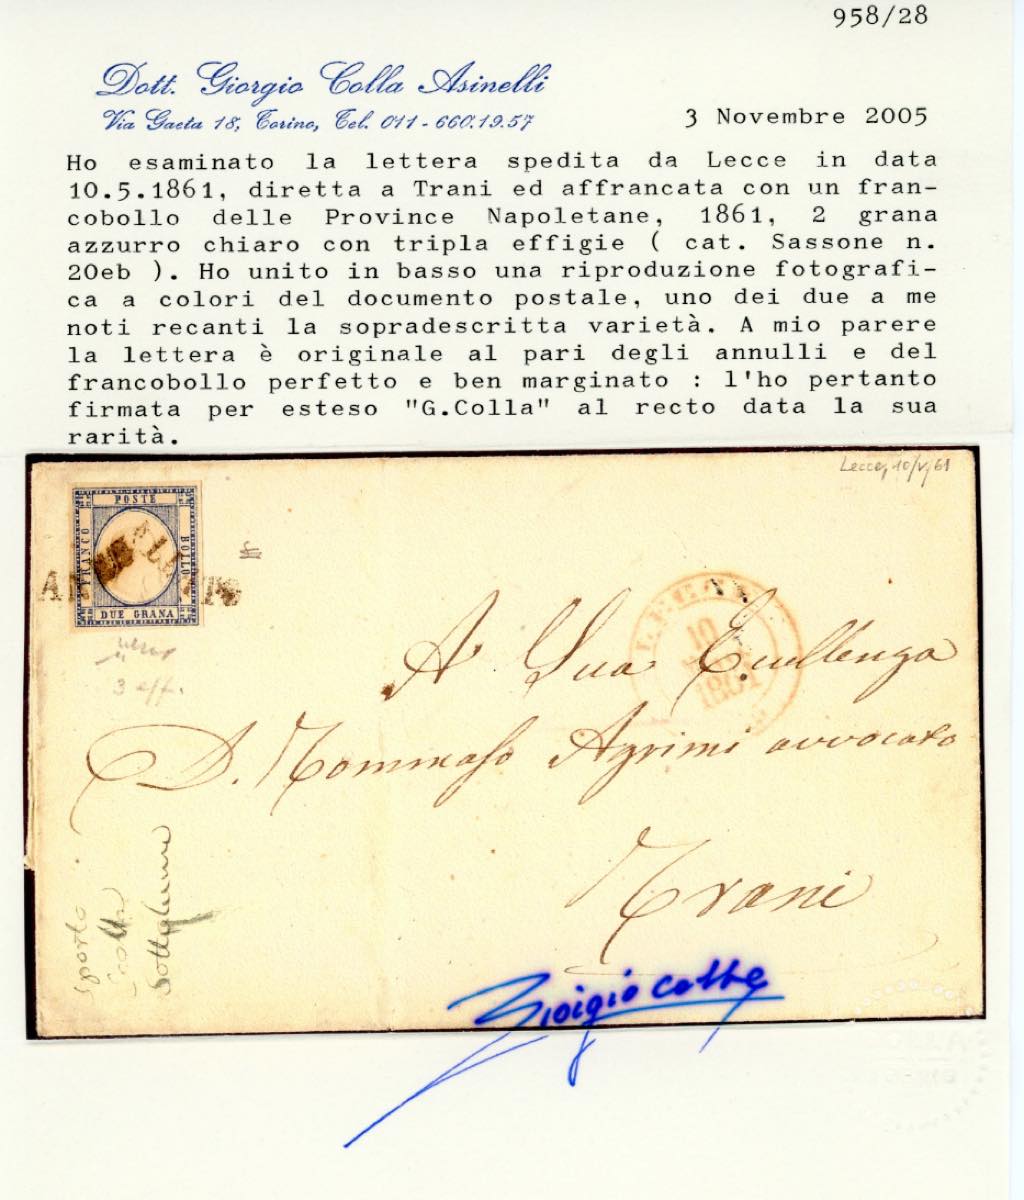 958/28
Dott. Giorgio Colla Asinelli
Via Gaeta 18, Torino, Tel. 011-660.19.57
3 Novembre 2005
Ho esaminato la lettera spedita da Lecce in data
10.5.1861, diretta a Trani ed affrancata con un fran-
cobollo delle Province Napoletane, 1861, 2 grana
azzurro chiaro con tripla effigie ( cat. Sassone n.
20eb ). Ho unito in basso una riproduzione fotografi-
ca a colori del documento postale, uno dei due a me
noti recanti la sopradescritta varietà. A mio parere
la lettera è originale al pari degli annulli e del
francobollo perfetto e ben marginato : l'ho pertanto
firmata per esteso "G.Colla" al recto data la sua
rarità.
Lecce, 10/V/61
POSTE
FRANCO
BOLLO
DUE GRANA
3 eff.
10
1861
A Sua Eccellenza
D. Tommaso Agrimi avvocato
Trani
Giorgio Colla